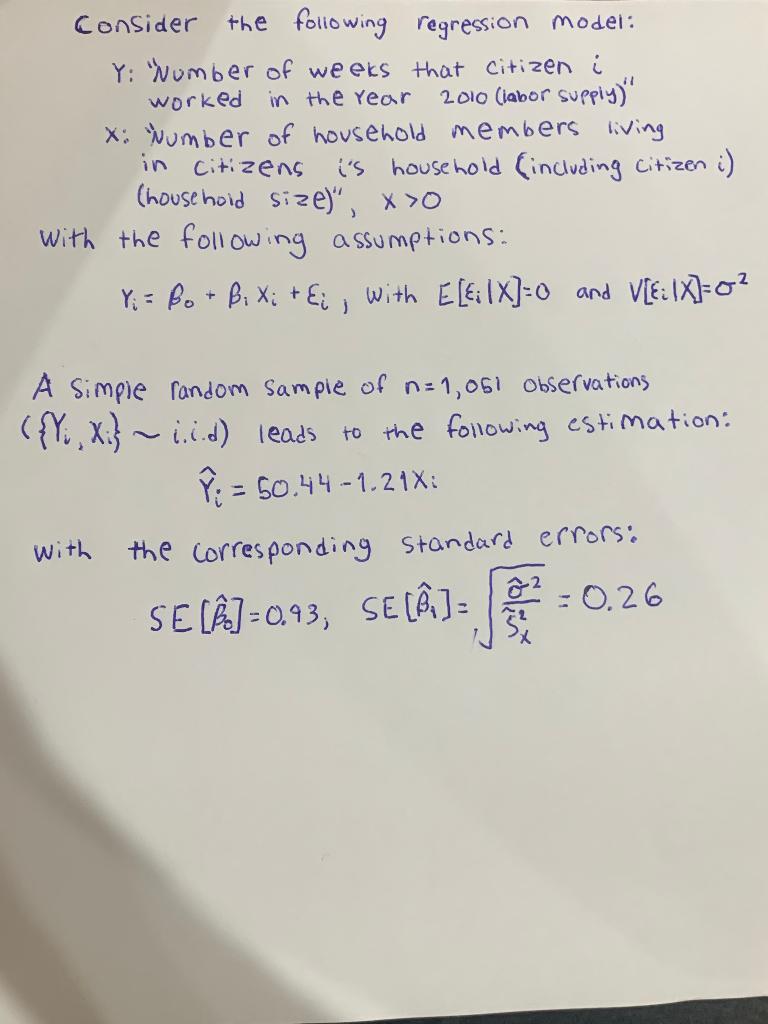 Consider the following regression model:
Y: "Number of weeks that citizen i
worked in the Year 2010 (labor supply)"
X: "Number of household members living
in citizens i's household (including citizen i)
(household size)", X>0
With the following assumptions:
Yᵢ = β₀ + β₁ Xᵢ + εᵢ , with E[εᵢ|X]=0 and V[εᵢ|X]=σ²
A Simple random sample of n=1,061 observations
({Yᵢ, Xᵢ} ~ i.i.d) leads to the following estimation:
Ŷᵢ = 50.44 - 1.21Xᵢ
with the corresponding standard errors:
SE[β̂₀]=0.93, SE[β̂₁]= √(σ̂²/S̃²ₓ) = 0.26